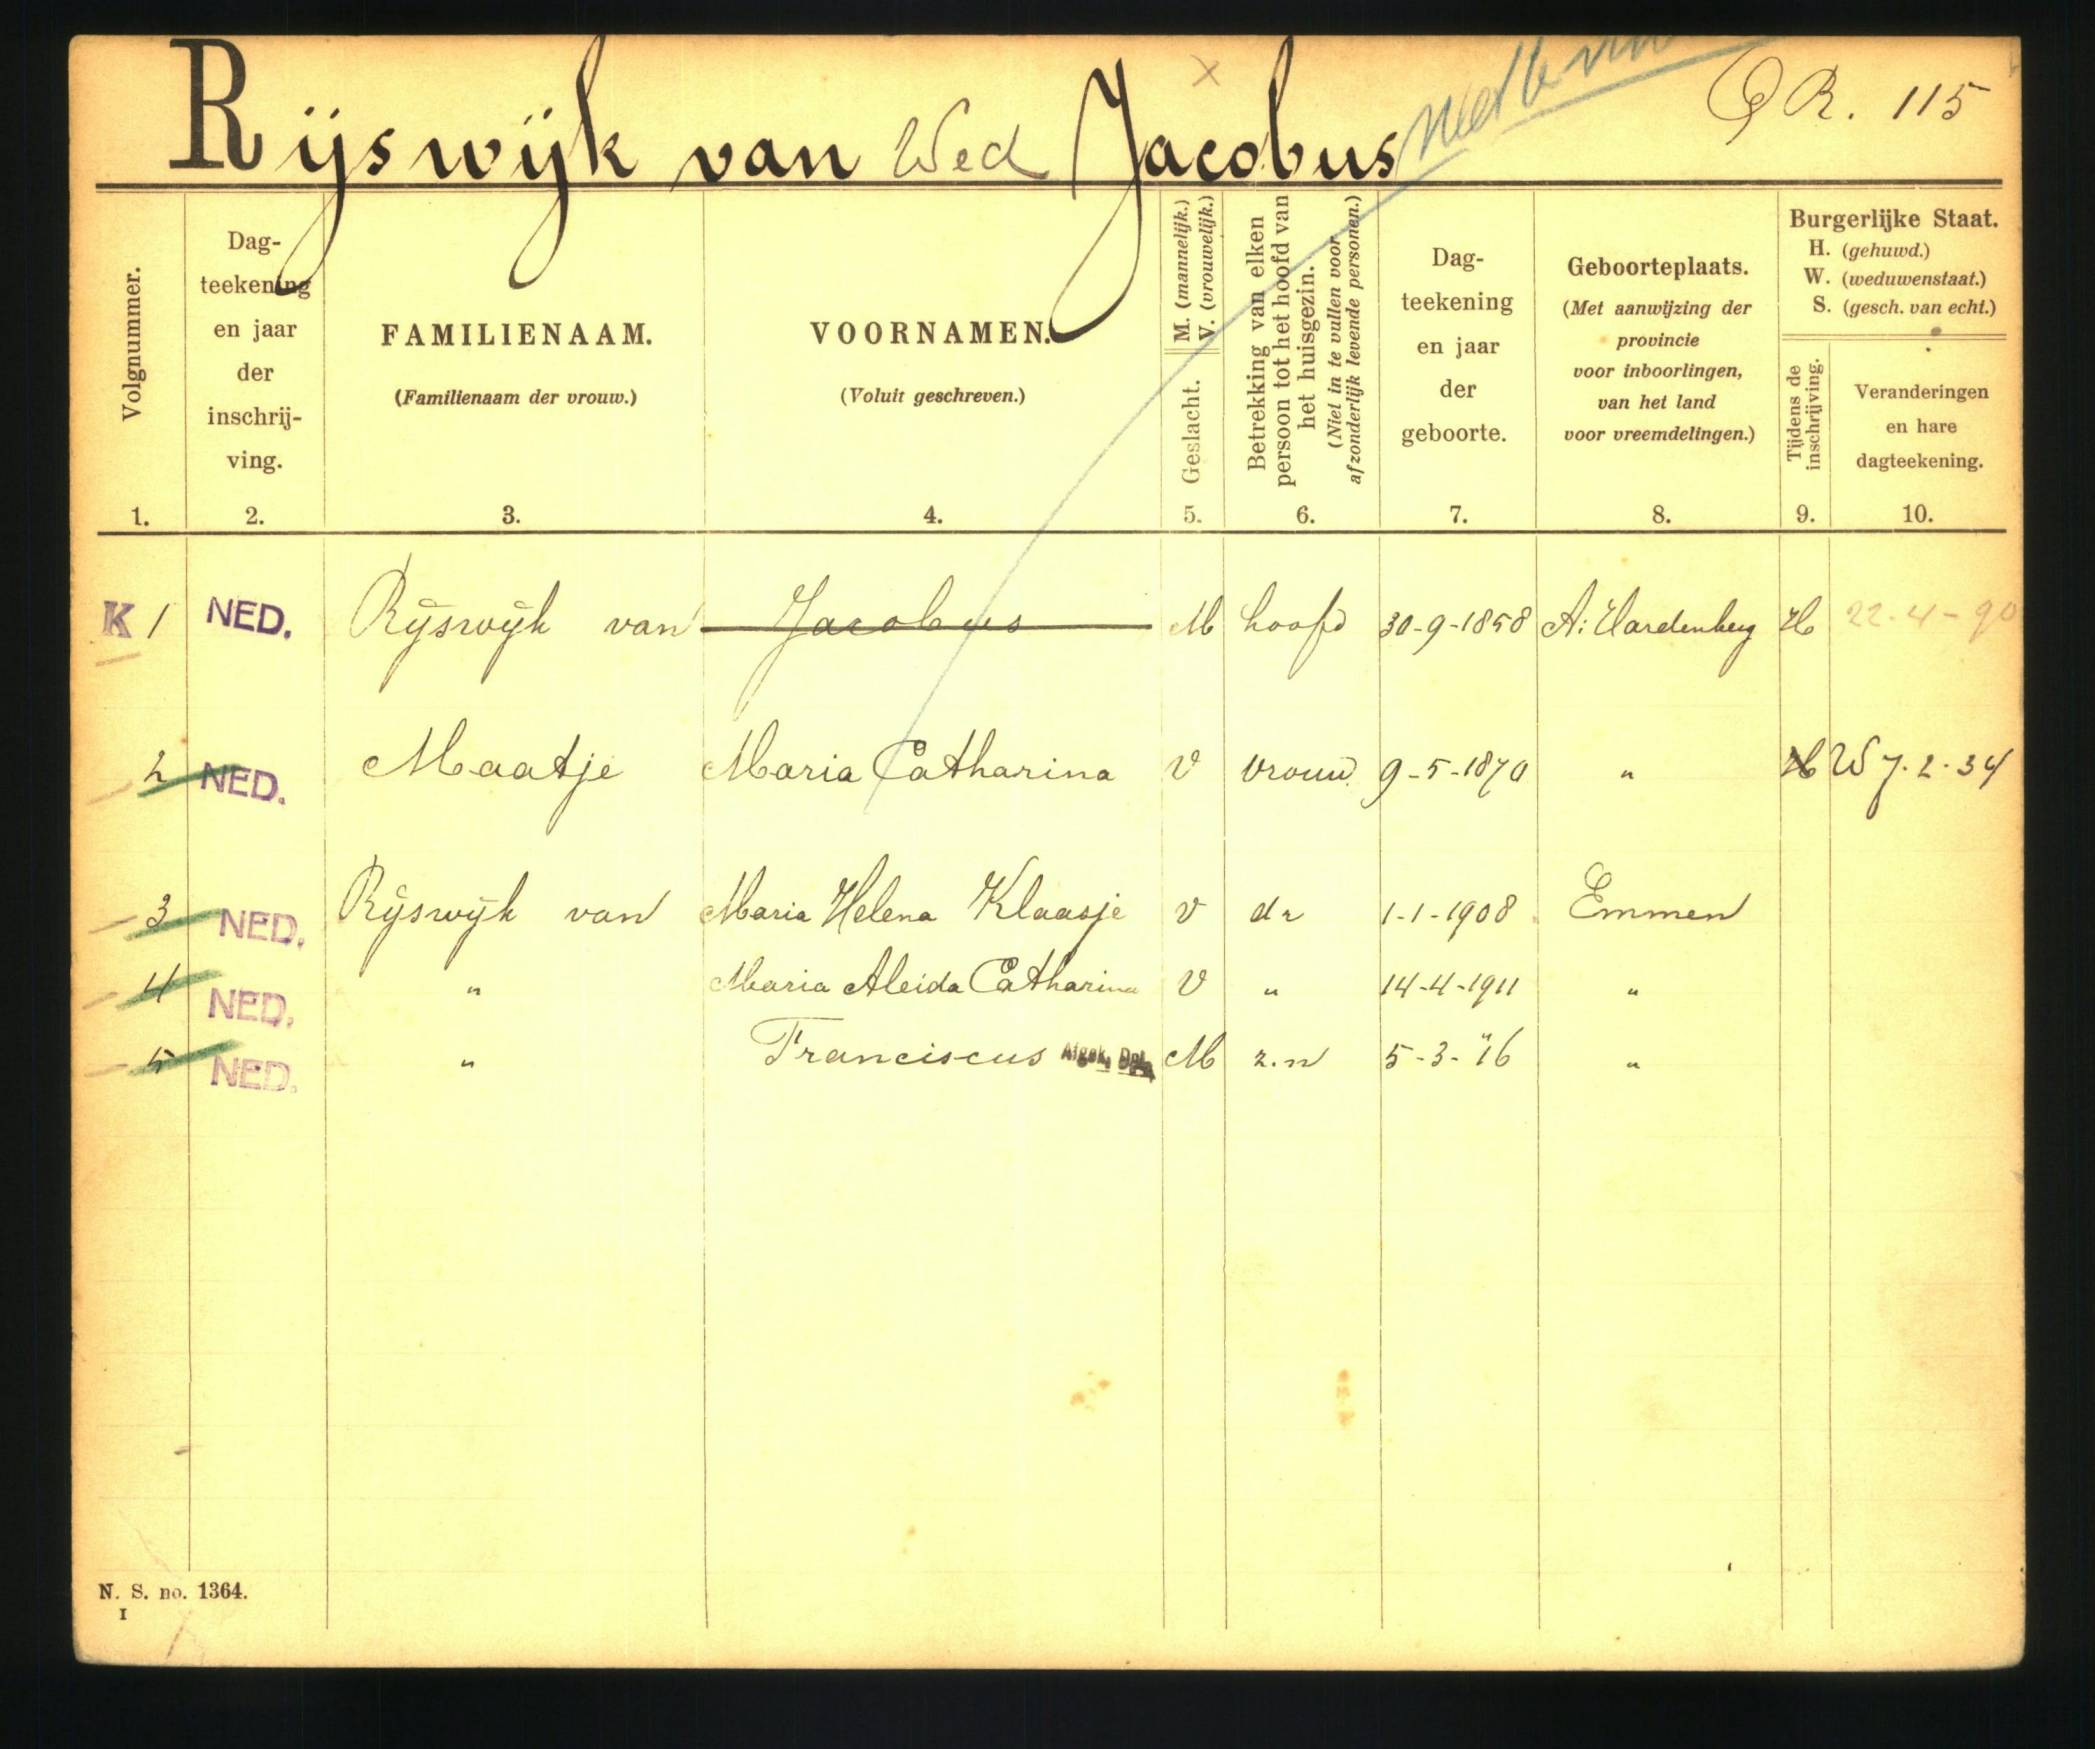 Rijswijk van Wed Jacobus
R. 115
Volgnummer.
1.
Dag-
teekening
en jaar
der
inschrij-
ving.
2.
FAMILIENAAM.
(Familienaam der vrouw.)
3.
VOORNAMEN.
(Voluit geschreven.)
4.
Geslacht. M. (mannelijk.)
V. (vrouwelijk.)
5.
Betrekking van elken
persoon tot het hoofd van
het huisgezin.
(Niet in te vullen voor
afzonderlijk levende personen.)
6.
Dag-
teekening
en jaar
der
geboorte.
7.
Geboorteplaats.
(Met aanwijzing der
provincie
voor inboorlingen,
van het land
voor vreemdelingen.)
8.
Burgerlijke Staat.
H. (gehuwd.)
W. (weduwenstaat.)
S. (gesch. van echt.)
Tijdens de
inschrijving.
9.
Veranderingen
en hare
dagteekening.
10.
K 1 NED. Rijswijk van Jacobus M hoofd 30-9-1858 A: Hardenberg H 22-4-90
2 NED. Maatje Maria Catharina V vrouw 9-5-1870 " H W 7.2.34
3 NED. Rijswijk van Maria Helena Klaasje V dr 1-1-1908 Emmen
4 NED. " Maria Aleida Catharina V " 14-4-1911 "
5 NED. " Franciscus Afgek. M z.n 5-3-"16 "
N. S. no. 1364.
I